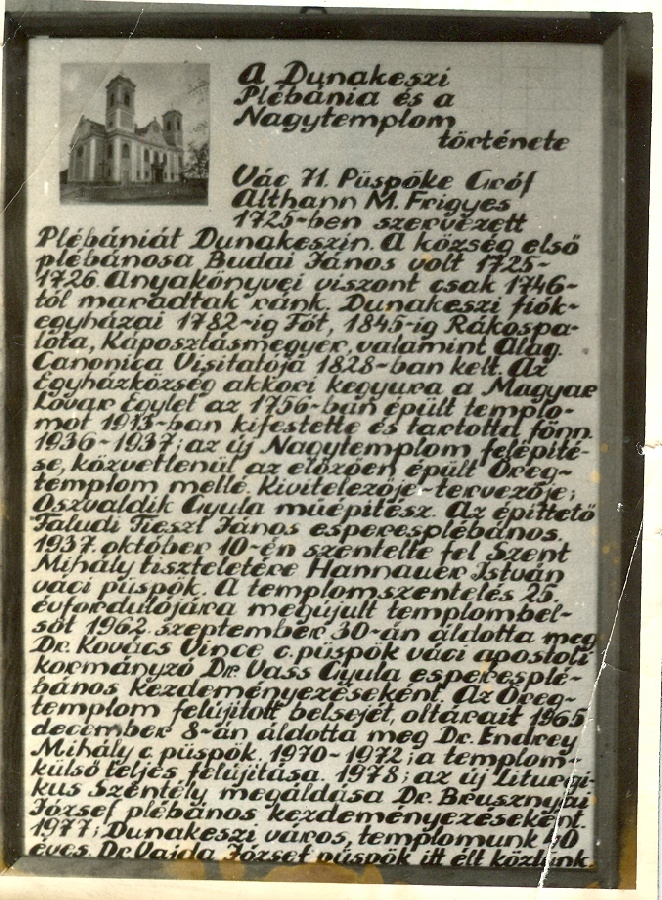 A Dunakeszi
Plébánia és a
Nagytemplom
története
Vác 71. Püspöke Gróf
Althann M. Frigyes
1725-ben szervezett
Plébániát Dunakeszin. A község első
plébánosa Budai János volt 1725-
1726. Anyakönyvei viszont csak 1746-
tól maradtak ránk. Dunakeszi fiók-
egyházai 1782-ig Fót, 1845-ig Rákospa-
lota, Káposztásmegyer, valamint Alag.
Canonica Visitatója 1828-ban kelt. Az
Egyházközség akkori kegyura a Magyar
Lovar Egylet az 1756-ban épült templo-
mot 1913-ban kifestette és tartotta fönn.
1936-1937; az új Nagytemplom felépíté-
se, közvetlenül az előzően épült Öreg-
templom mellé. Kivitelezője-tervezője;
Oszvaldik Gyula műépítész. Az építtető
Faludi Tieszl János esperesplébános.
1937. október 10-én szentelte fel Szent
Mihály tiszteletére Hannauer István
váci püspök. A templomszentelés 25.
évfordulójára megújult templombel-
sőt 1962. szeptember 30-án áldotta meg
Dr. Kovács Vince c. püspök váci apostoli
kormányzó Dr. Vass Gyula esperesplé-
bános kezdeményezéseként. Az Öreg-
templom felújított belsejét, oltárait 1965
december 8-án áldotta meg Dr. Endrey
Mihály c. püspök. 1970-1972; a templom-
külső teljes felújítása. 1978; az új Liturgi-
kus Szentély megáldása Dr. Brusznyai
József plébános kezdeményezéseként.
1977; Dunakeszi város, templomunk 40
éves. Dr. Vajda József püspök itt élt közöttünk.